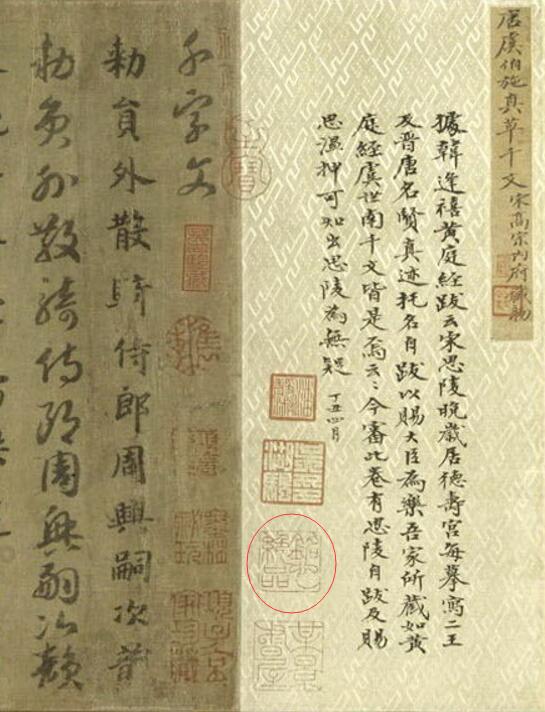 唐虞伯施真草千文 宋高宗內府藏物
據韓逢禧黃庭經跋云宋思陵晚歲居德壽宮每摹寫二王
及晉唐名賢真迹托名自跋以賜大臣為樂吾家所藏如黃
庭經虞世南千文皆是焉云云今審此卷有思陵自跋及賜
思溫押可知出思陵為無疑 丁丑四月
千字文
勑員外散騎侍郎周興嗣次韻
勑員外散騎侍郎周興嗣次韻